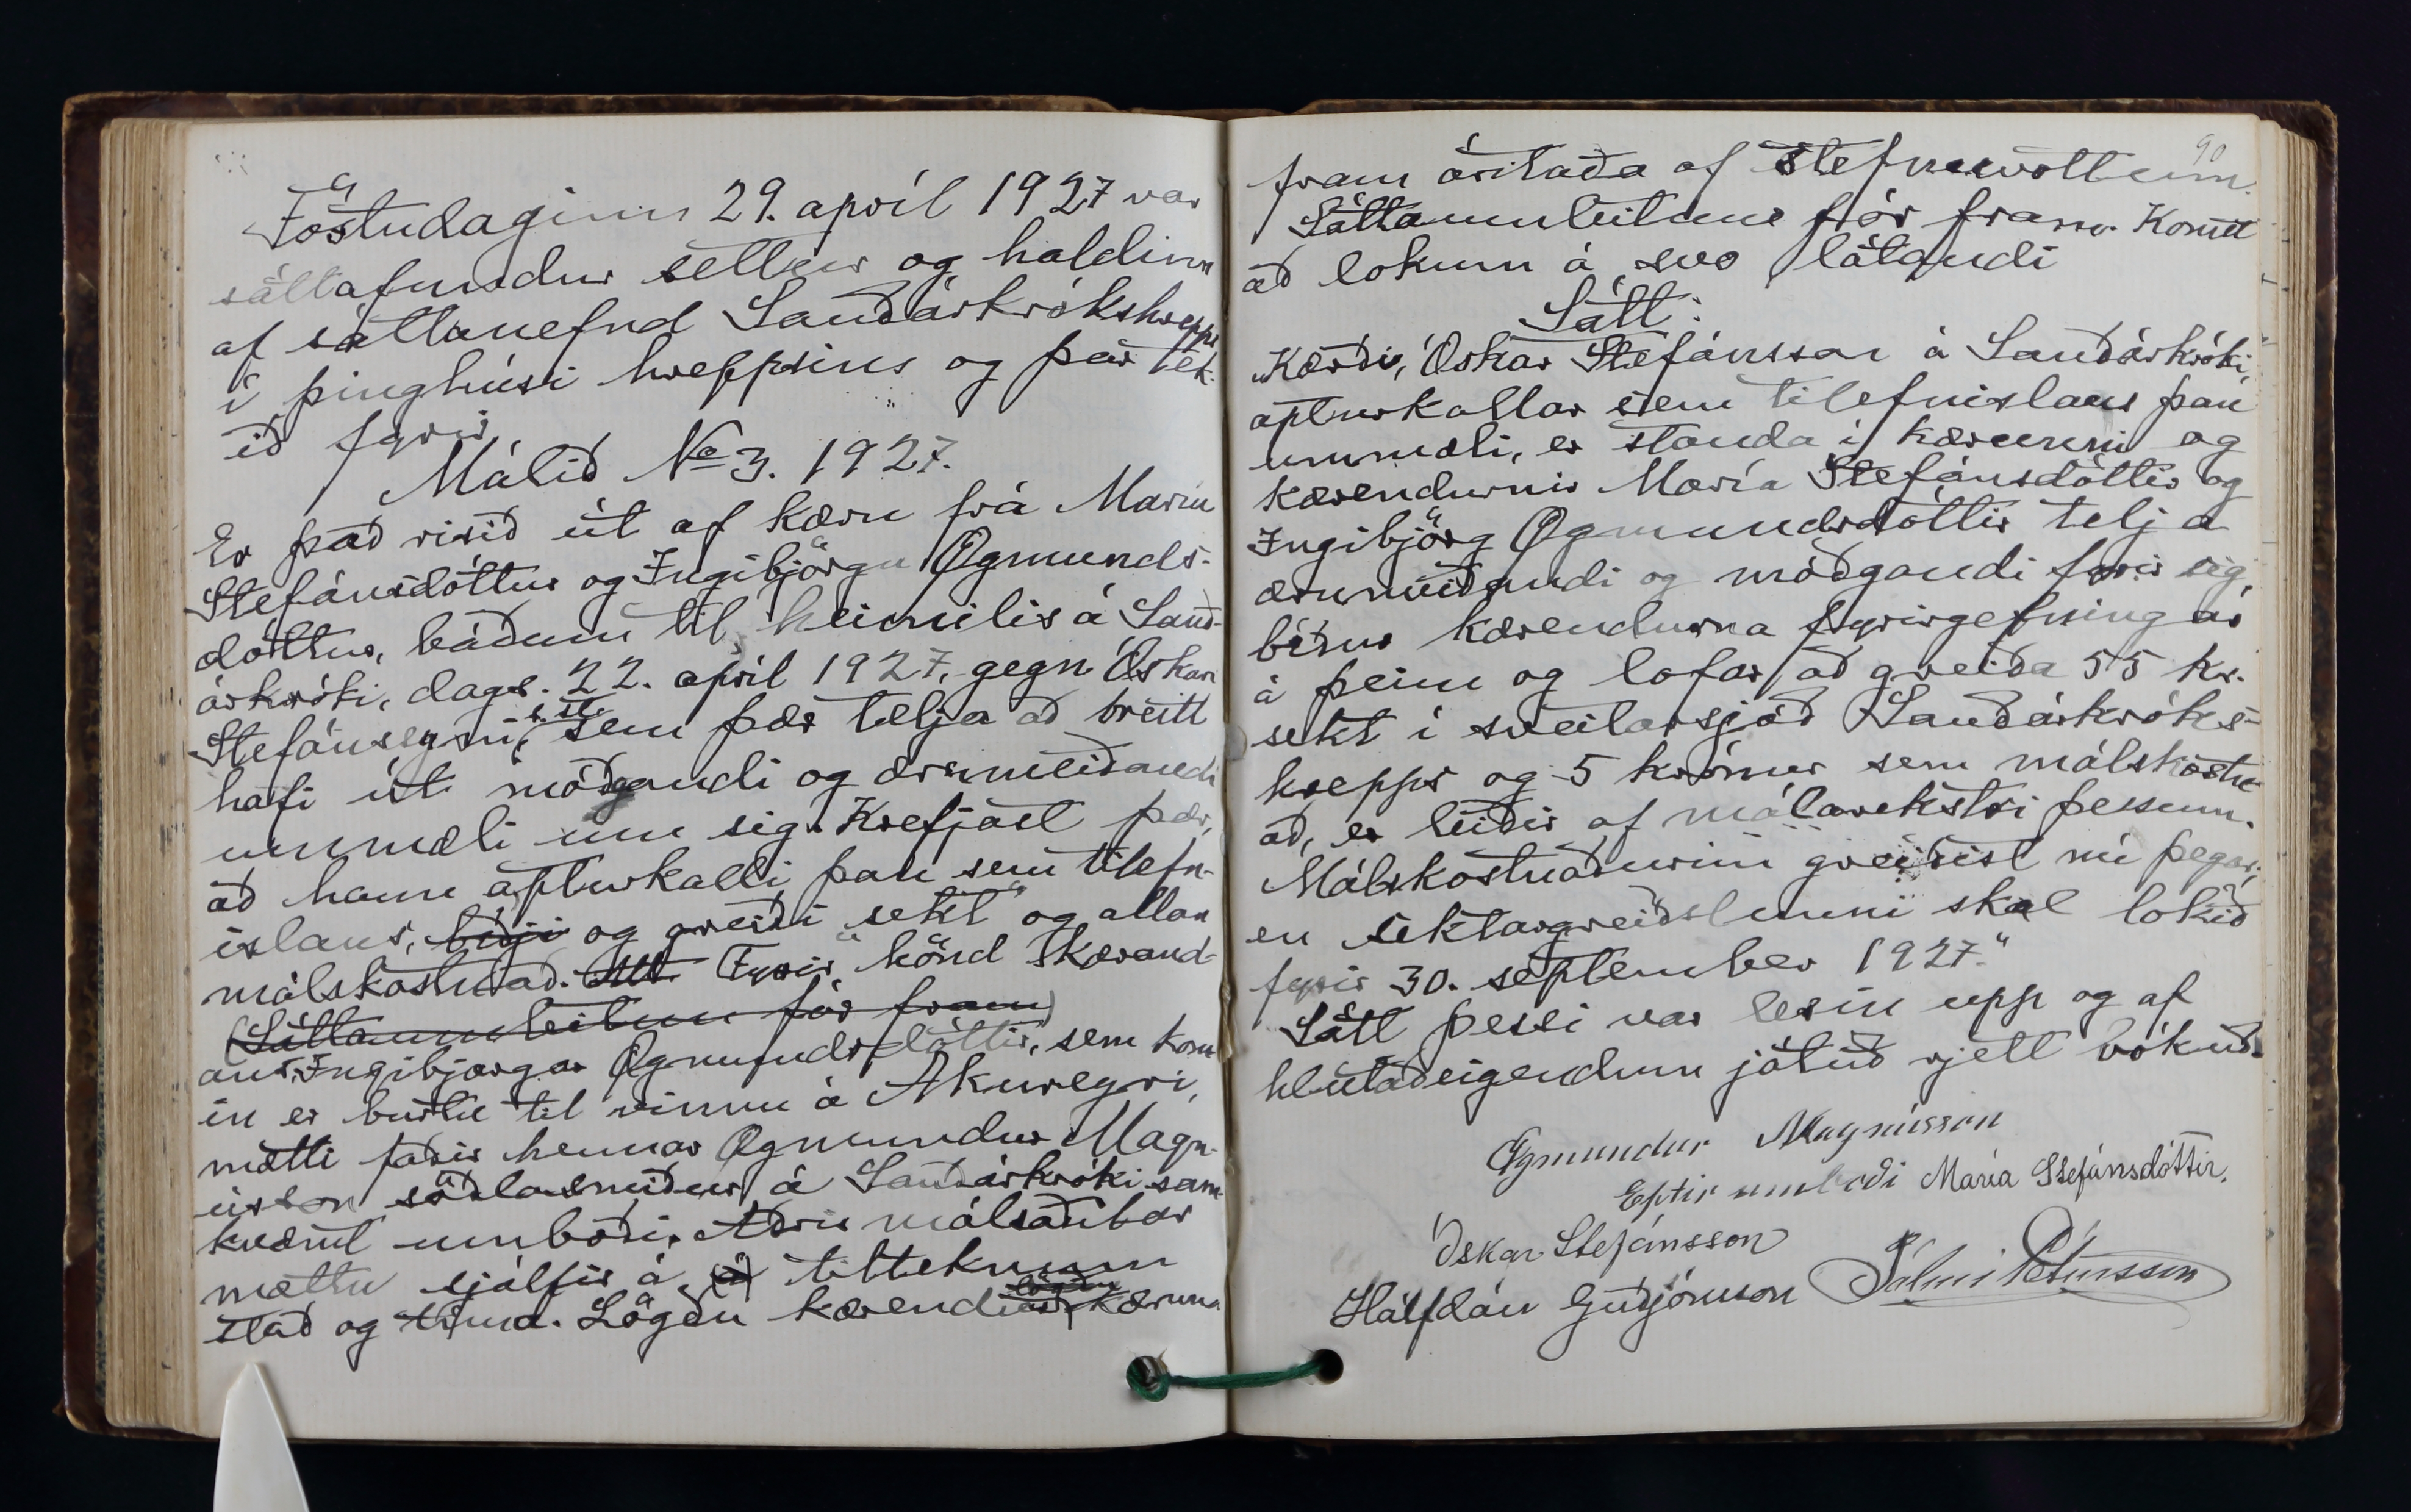 Föstudaginn 29. apríl 1927 var
sáttafundur settur og haldinn
af sáttanefnd Sauðárkrókshrepps
í þinghúsi hreppsins og þar tek-
ið fyrir
Málið No 3. 1927.
Er það risið út af kæru frá Maríu
Stefánsdóttur og Ingibjörgu Ögmunds-
dóttur, báðum til heimilis á Sauð-
árkróki, dags. 22. apríl 1927, gegn Óskari
Stefánssyni s. st. sem þær telja að breitt
hafi út móðgandi og ærumeiðandi
ummæli um sig. Krefjast þær,
að hann apturkalli þau sem tilefn-
islaus, biðji og greiði sekt og allan
málskostnað. Fyrir hönd kærand-
(Sáttaumleitun fór fram)
ans Ingibjargar Ögmundsdóttir, sem kom-
in er burtu til vinnu á Akureyri,
mætti faðir hennar Ögmundur Magn-
ússon söðlasmiður á Sauðárkróki sam-
kvæmt umboði. Aðrir málsaðilar
mættu sjálfir á (á) tilteknum
stað og tíma. Lögðu kærendur kæruna
90
fram áritaða af stefnuvottum.
Sáttaumleitun fór fram. Komst
að lokum á svo látandi
Sátt:
„Kærði, Óskar Stefánsson á Sauðárkróki,
apturkallar sem tilefnislaus þau
ummæli, er standa í kærunni og
kærendurnir María Stefánsdóttir og
Ingibjörg Ögmundsdóttir telja
ærumeiðandi og móðgandi fyrir sig,
biður kærendurna fyrirgefning ar
á þeim og lofar að greiða 55 kr.
sekt í sveitarsjóð Sauðárkróks-
hrepps og 5 krónur sem málskostn-
að, er leiðir af málarekstri þessum.
Málskostnaðurinn greiðist nú þegar,
en sektargreiðslunni skal lokið
fyrir 30. september 1927."
Sátt þessi var lesin upp og af
hlutaðeigendum játuð rjett bókuð.
Ögmundur Magnússon
Eptir umboði María Stefánsdóttir.
Óskar Stefánsson
Hálfdán Guðjónsson Pálmi Pétursson